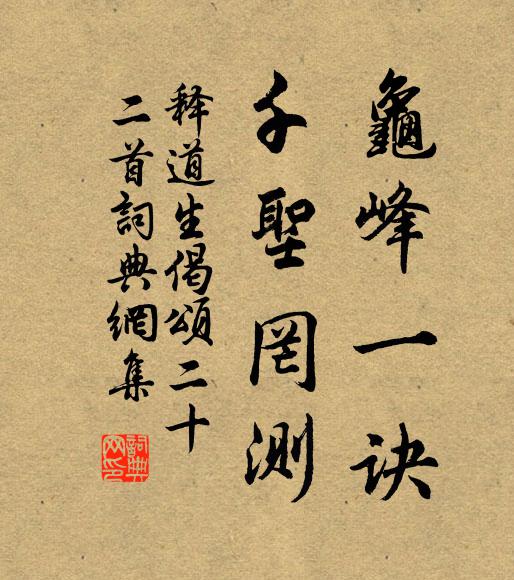 龜峰一訣
千聖罔測
释道生偈頌二十
二首詞典網集
詞典
网印